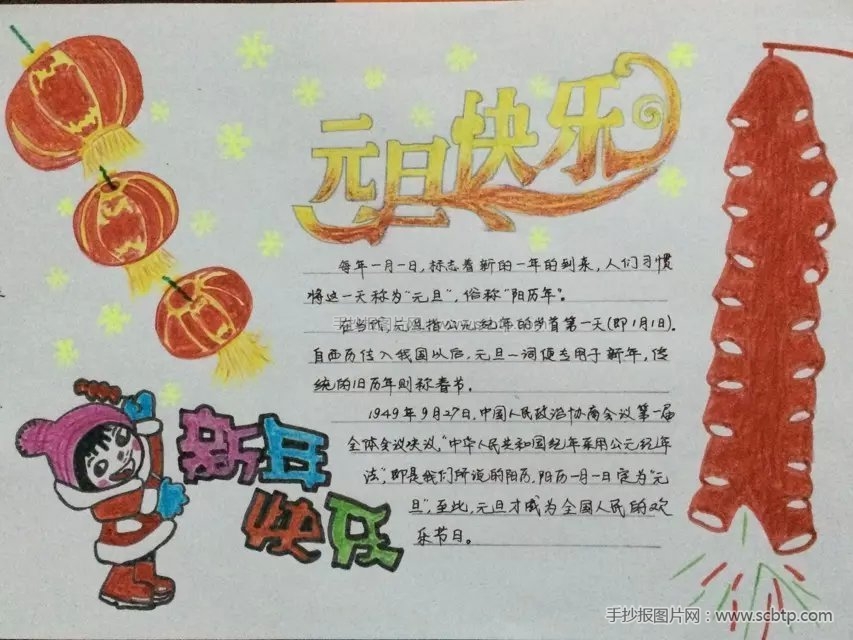 元旦快乐
每年一月一日,标志着新的一年的到来,人们习惯
将这一天称为“元旦”,俗称“阳历年”。
手抄报图片网
在当代,元旦指公元纪年的岁首第一天(即1月1日).
自西历传入我国以后,元旦一词便专用于新年,传
统的旧历年则称春节.
1949年9月27日,中国人民政治协商会议第一届
全体会议决议,“中华人民共和国纪年采用公元纪年
法”,即是我们所说的阳历,阳历一月一日定为“元
旦”,至此,元旦才成为全国人民的欢
乐节日。
新年
快乐
手抄报图片网:www.scbtp.com